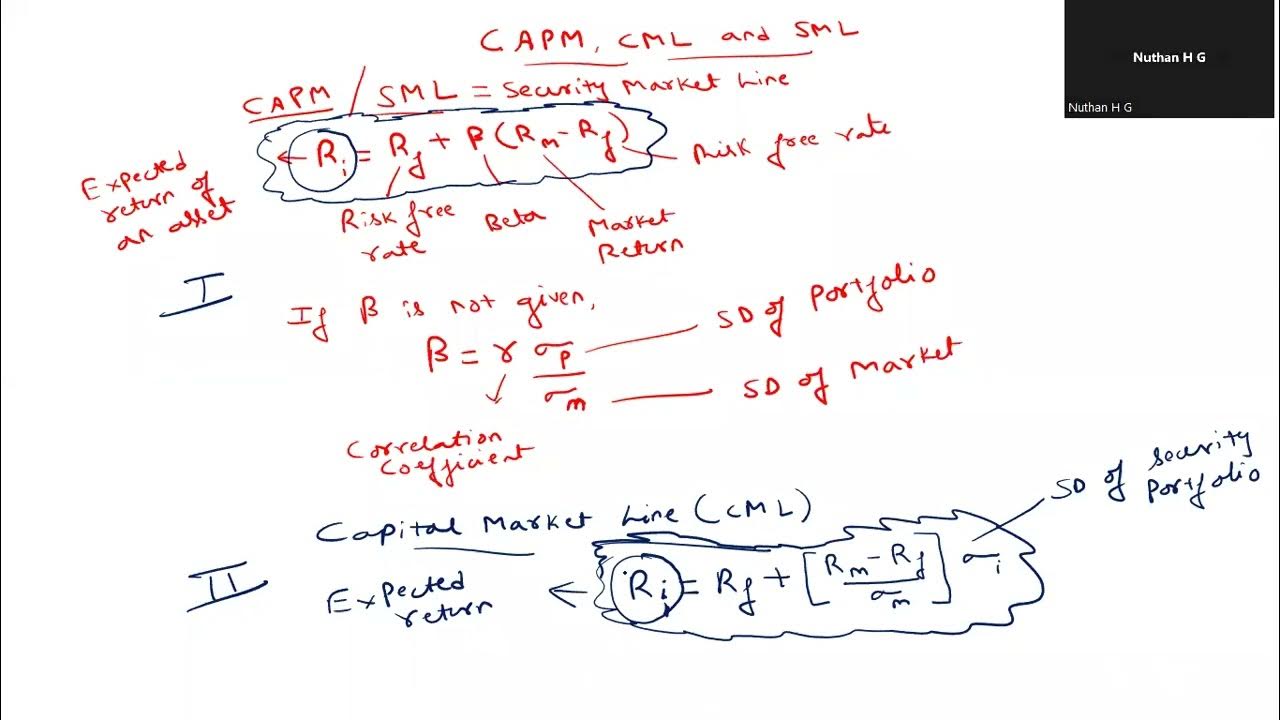 CAPM, CML and SML
Nuthan H G
Nuthan H G
CAPM / SML = Security Market Line
Ri = Rf + β (Rm - Rf)
Risk free rate
Expected
return of
an asset
Risk free
rate
Beta
Market
Return
I
If β is not given,
β = r σp / σm
SD of Portfolio
SD of Market
Correlation
Coefficient
Capital Market Line (CML)
SD of security
Portfolio
II
Expected
return
Ri = Rf + [Rm - Rf / σm] σi